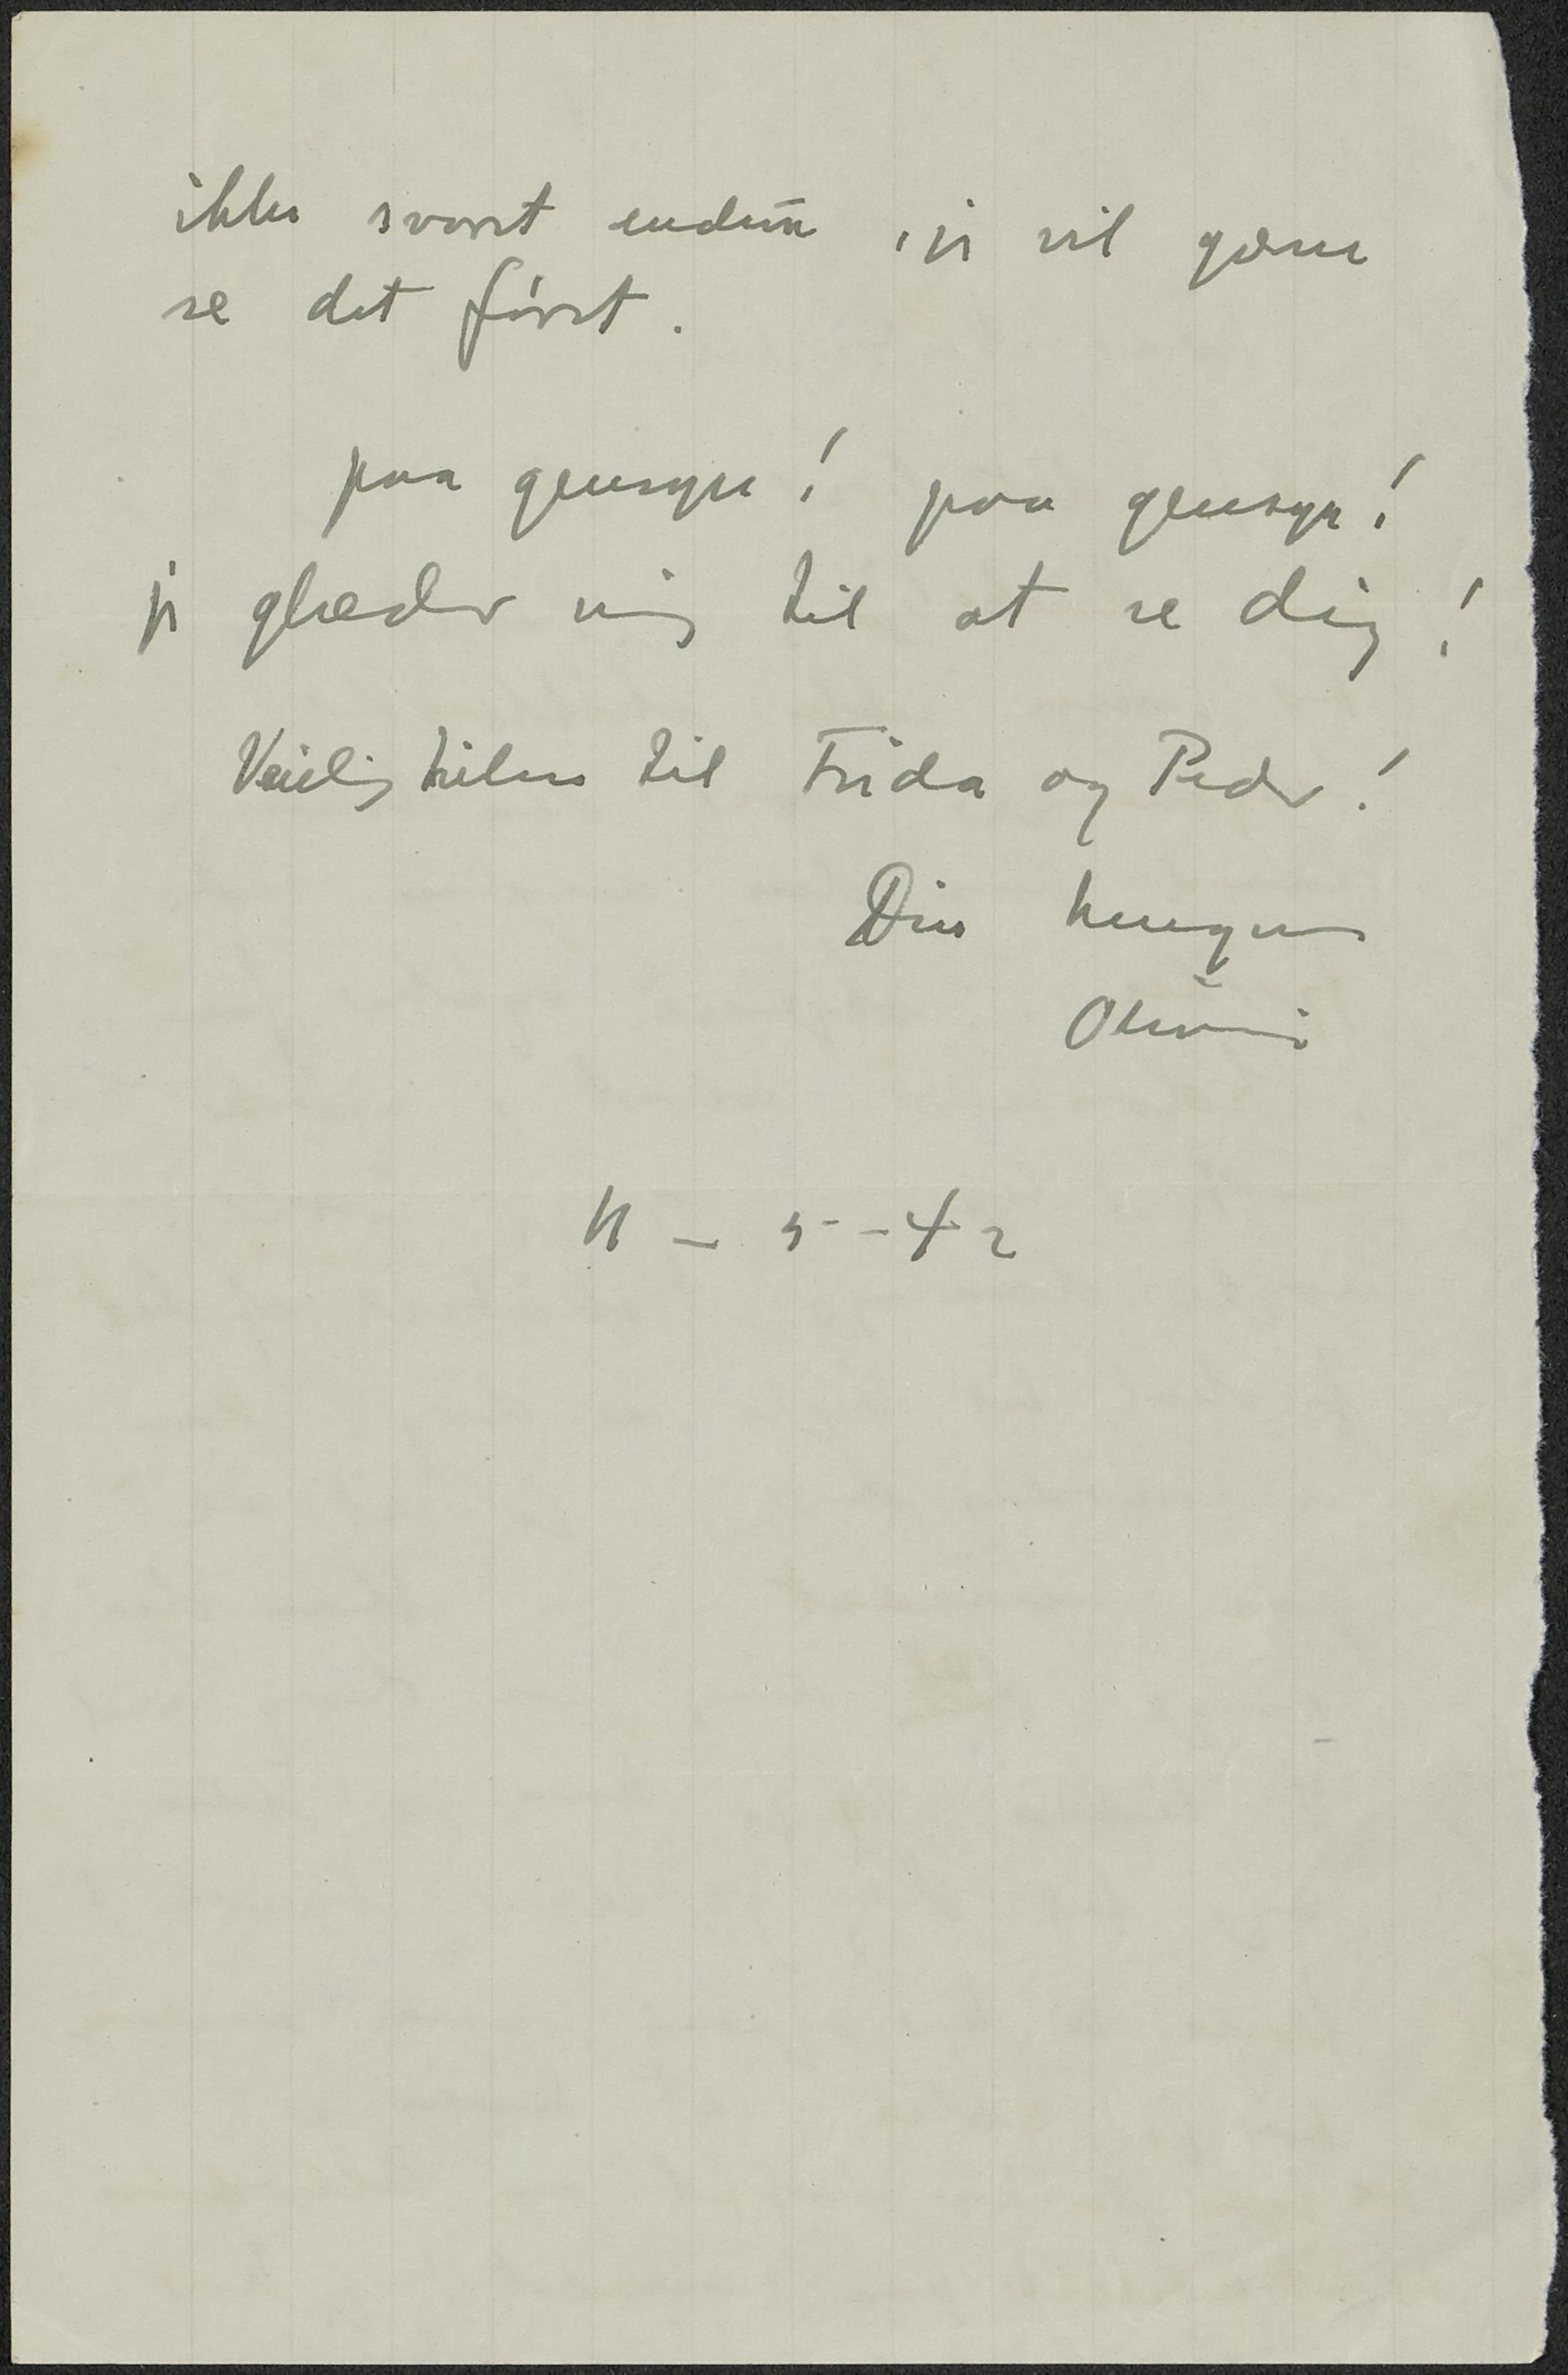 ikke svaret endnu, jeg vil gerne
se det først.
paa gensyn! paa gensyn!
jeg glæder mig til at se dig!
Venlig hilsen til Frida og Peder!
Din hengivne